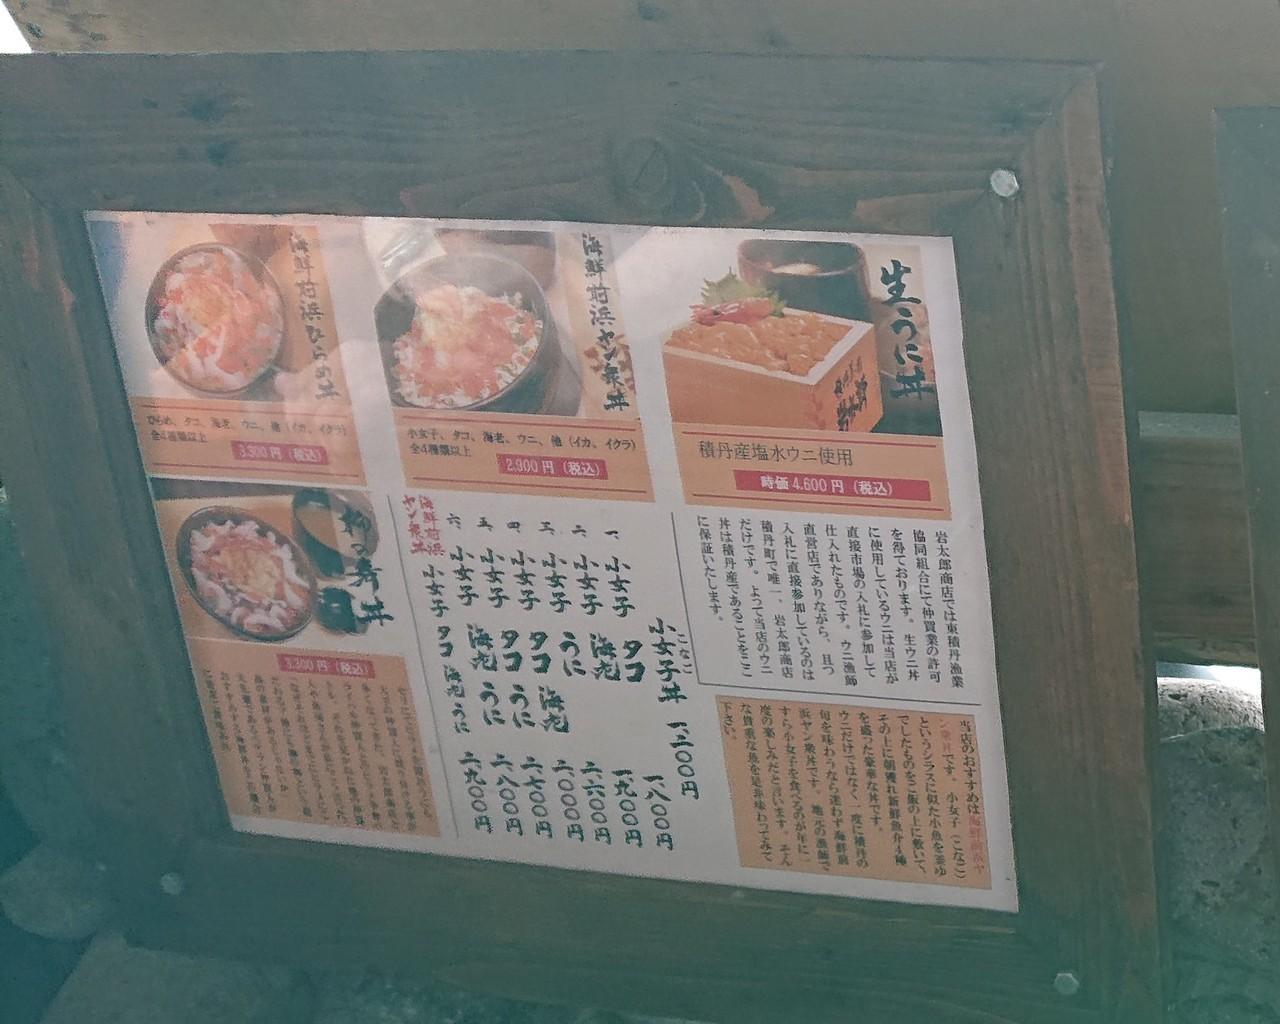 生うに丼
積丹産塩水ウニ使用
時価 4.600 円（税込）
海鮮前浜ヤン衆丼
小女子、タコ、海老、ウニ、他（イカ、イクラ）
全4種類以上
2.900 円（税込）
海鮮前浜ひらめ丼
ひらめ、タコ、海老、ウニ、他（イカ、イクラ）
全4種類以上
3.300 円（税込）
岩太郎商店では東積丹漁業
協同組合にて仲買業の許可
を得ております。生ウニ丼
に使用しているウニは当店が
直接市場の入札に参加して
仕入れたものです。ウニ漁師
直営店でありながら、且つ
入札に直接参加しているのは
積丹町で唯一、岩太郎商店
だけです。よって当店のウニ
丼は積丹産であることをここ
に保証いたします。
当店のおすすめは海鮮前浜ヤ
ン衆丼です。小女子（こなご）
というシラスに似た小魚を釜ゆ
でしたものをご飯の上に敷いて、
その上に朝獲れ新鮮魚介4種
を盛った豪華な丼です。
ウニだけではなく一度に積丹の
旬を味わうなら迷わず海鮮前
浜ヤン衆丼です。地元の漁師で
すら小女子を食べるのが年に一
度の楽しみだと言います。そん
な貴重な魚を是非味わってみて
下さい。
こなご
小女子丼 一、二〇〇円
一、小女子 タコ 一、八〇〇円
二、小女子 海老 一、九〇〇円
三、小女子 うに 二、六〇〇円
四、小女子 タコ 海老 二、〇〇〇円
五、小女子 タコ うに 二、七〇〇円
六、小女子 海老 うに 二、八〇〇円
海鮮前浜
ヤン衆丼 小女子 タコ 海老 うに 二、九〇〇円
柳の舞丼
3.300 円（税込）